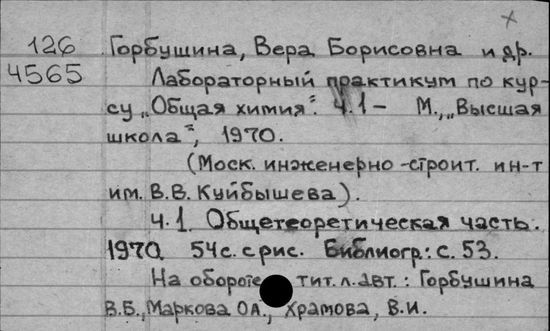 126 Горбушина, Вера Борисовна и др.
4565 Лабораторный практикум по кур-
су „Общая химия“. Ч.1 – М., „Высшая
школа“, 1970.
(Моск. инженерно-строит. ин-т
им. В.В. Куйбышева).
ч.1. Общетеоретическая часть.
1970. 54 с. с рис. Библиогр.: с. 53.
На обороте тит. л. авт.: Горбушина
В.Б., Маркова О.А., Храмова, В.И.